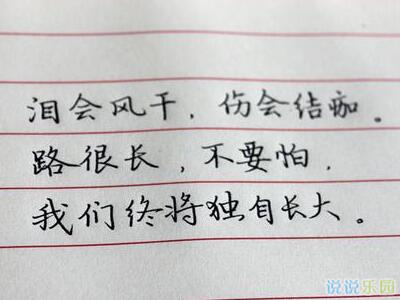 泪会风干，伤会结痂。
路很长，不要怕，
我们终将独自长大。
说说乐园